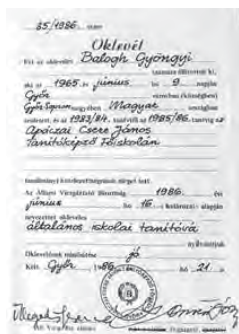 35/1986. szám
Oklevél
Ezt az oklevelet Balogh Gyöngyi
számára állítottuk ki,
aki az 1965. év június hó 9. napján
Győr városban (községben)
Győr-Sopron megyében Magyar országban
született, és az 1983/84. tanévtől az 1985/86. tanévig az
Apáczai Csere János
Tanítóképző Főiskolán
tanulmányi kötelezettségeinek eleget tett.
Az Állami Vizsgáztató Bizottság 1986. évi
június hó 16-i határozata alapján
nevezettet okleveles
általános iskolai tanítóvá
nyilvánítjuk.
Oklevelének minősítése jó
Kelt, Győr 1986. hó 21.